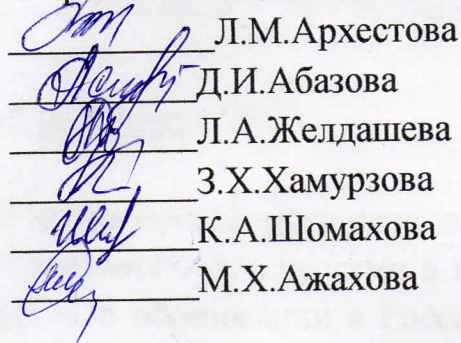 Л.М.Архестова
Д.И.Абазова
Л.А.Желдашева
З.Х.Хамурзова
К.А.Шомахова
М.Х.Ажахова